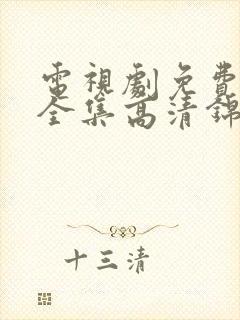 電視劇免費
全集高清錦
十三清